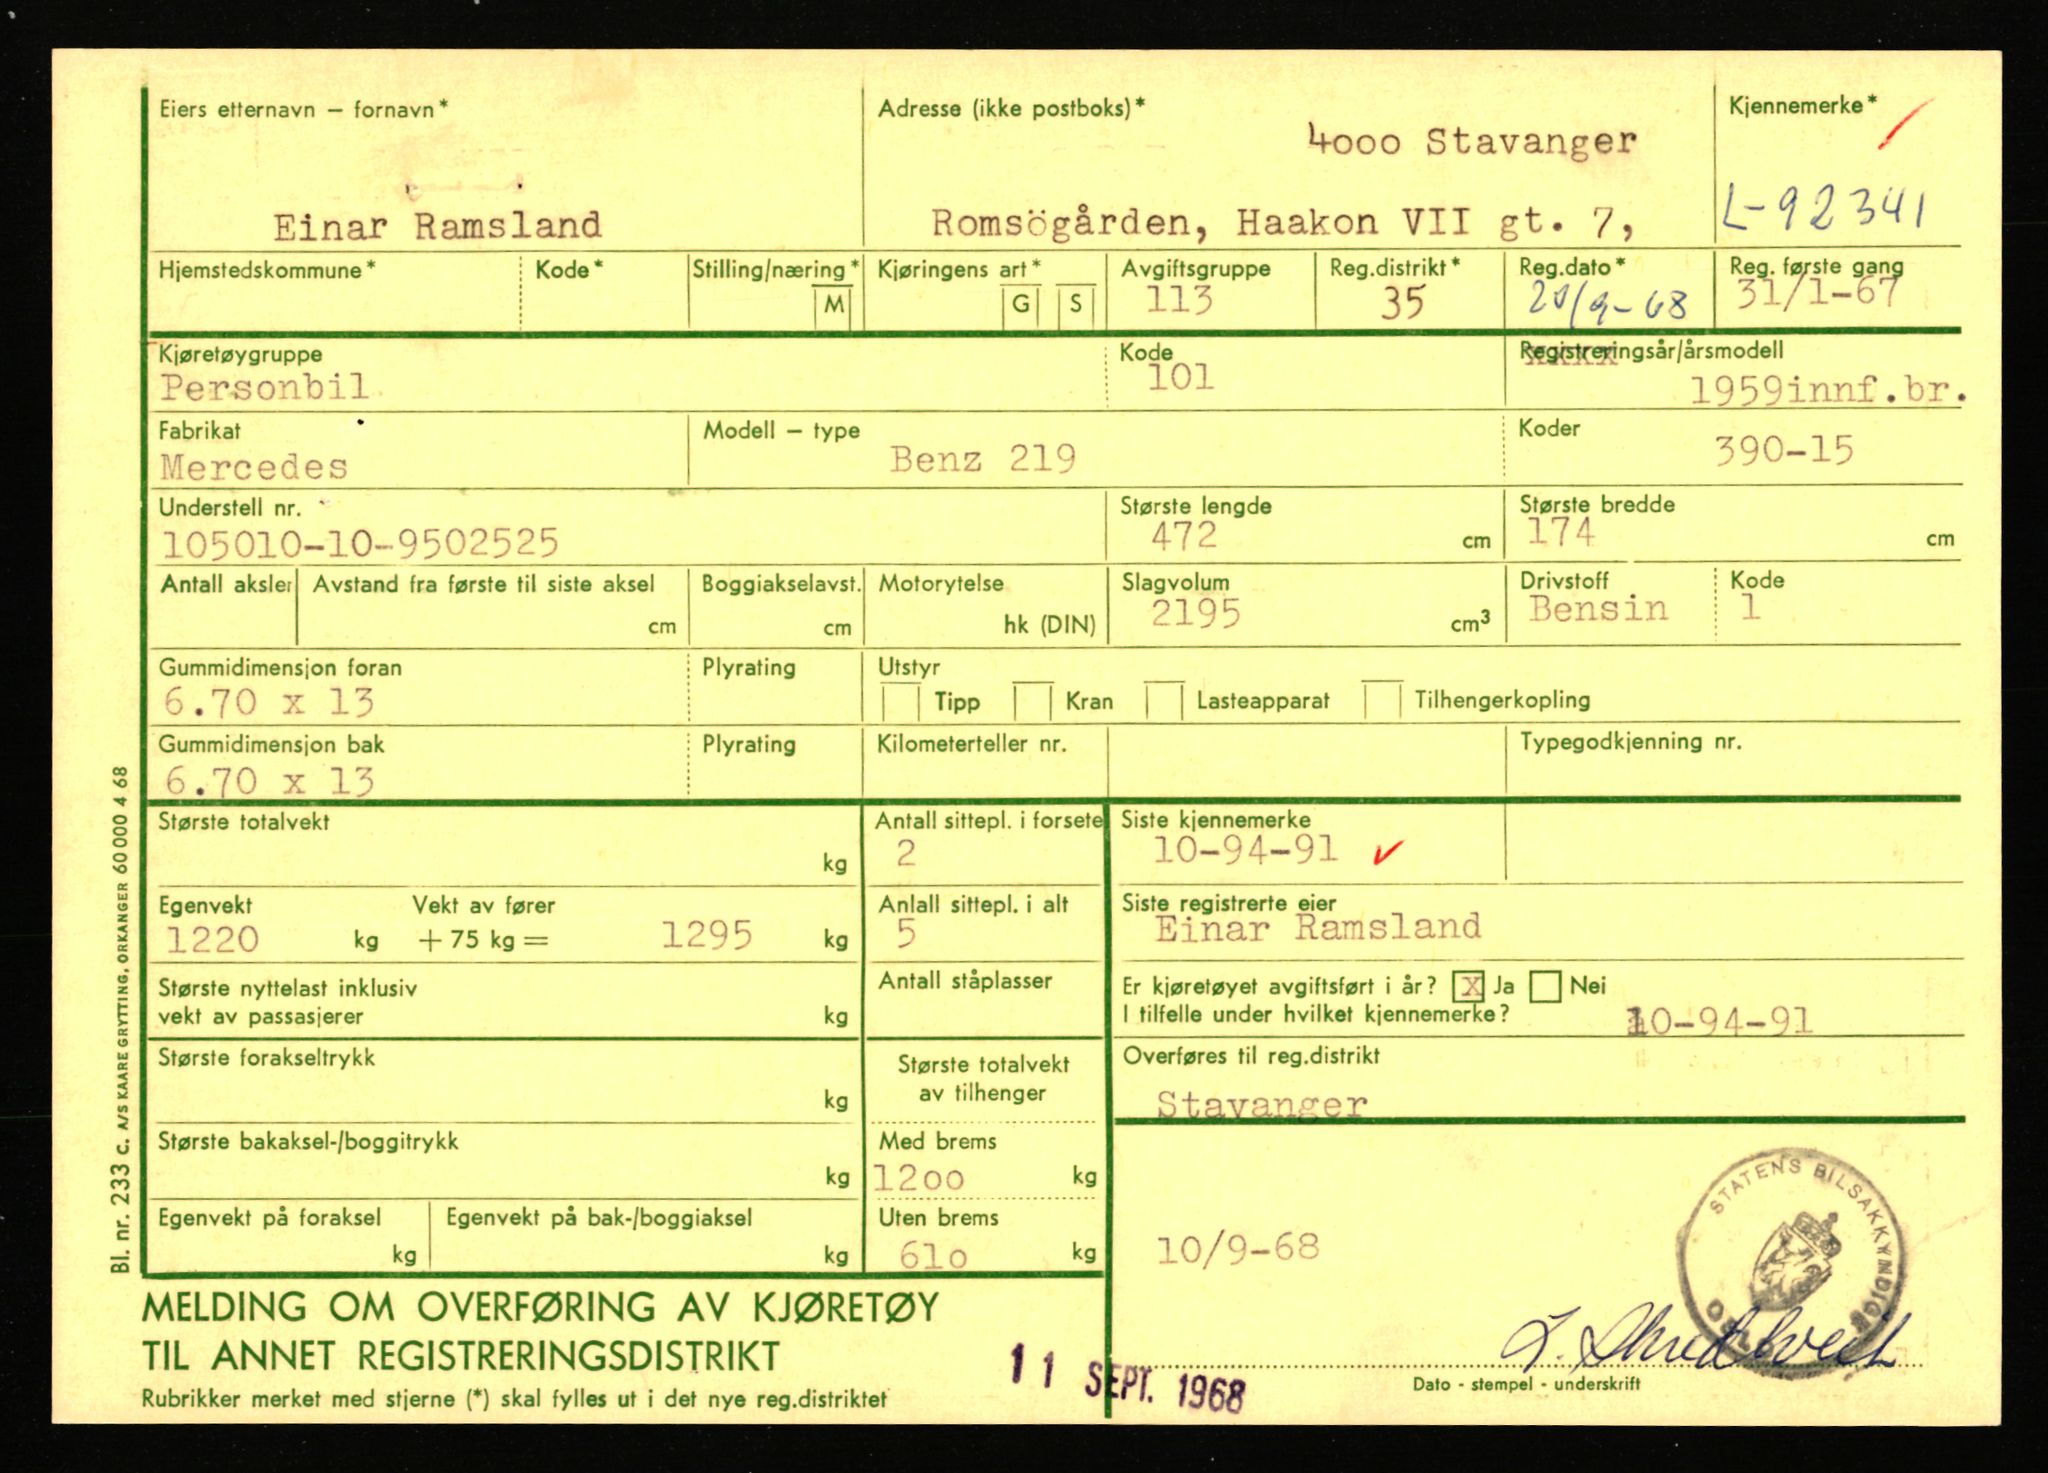 Eiers etternavn – fornavn*
Adresse (ikke postboks)*
Kjennemerke*
4000 Stavanger
Einar Ramsland
Romsögården, Haakon VII gt. 7,
L-92341
Hjemstedskommune*
Kode*
Stilling/næring*
M
Kjøringens art*
G
S
Avgiftsgruppe
113
Reg.distrikt*
35
Reg.dato*
20/9-68
Reg. første gang
31/1-67
Kjøretøygruppe
Personbil
Kode
101
Registreringsår/årsmodell
1959innf.br.
Fabrikat
Mercedes
Modell – type
Benz 219
Koder
390-15
Understell nr.
105010-10-9502525
Største lengde
472 cm
Største bredde
174 cm
Antall aksler
Avstand fra første til siste aksel
cm
Boggiakselavst.
cm
Motorytelse
hk (DIN)
Slagvolum
2195 cm3
Drivstoff
Bensin
Kode
1
Gummidimensjon foran
6.70 x 13
Plyrating
Utstyr
Tipp
Kran
Lasteapparat
Tilhengerkopling
Gummidimensjon bak
6.70 x 13
Plyrating
Kilometerteller nr.
Typegodkjenning nr.
Største totalvekt
kg
Antall sittepl. i forsete
2
Siste kjennemerke
10-94-91
Egenvekt
1220 kg
Vekt av fører
+ 75 kg = 1295 kg
Anlall sittepl. i alt
5
Siste registrerte eier
Einar Ramsland
Største nyttelast inklusiv
vekt av passasjerer
kg
Antall ståplasser
Er kjøretøyet avgiftsført i år? X Ja Nei
I tilfelle under hvilket kjennemerke?
10-94-91
Største forakseltrykk
kg
Største totalvekt
av tilhenger
Overføres til reg.distrikt
Stavanger
Største bakaksel-/boggitrykk
kg
Med brems
1200 kg
Egenvekt på foraksel
kg
Egenvekt på bak-/boggiaksel
kg
Uten brems
610 kg
10/9-68
STATENS BILSAKKYNDIGE
OSLO
MELDING OM OVERFØRING AV KJØRETØY
TIL ANNET REGISTRERINGSDISTRIKT
Rubrikker merket med stjerne (*) skal fylles ut i det nye reg.distriktet
11 SEPT. 1968
Dato - stempel - underskrift
Bl. nr. 233 C. A/S KAARE GRYTTING, ORKANGER 60000 4 68